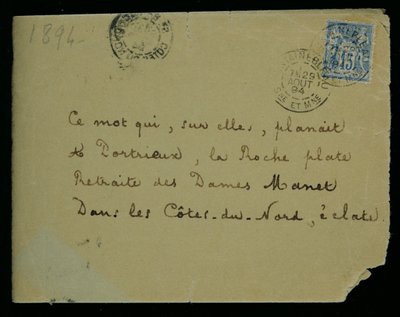 1894_
15
29
AOUT
94
Sne ET Mne
Ce mot qui, sur elles, planait
Portrieux, la Roche plate
Retraite des Dames Manet
Dans les Côtes-du-Nord, éclate